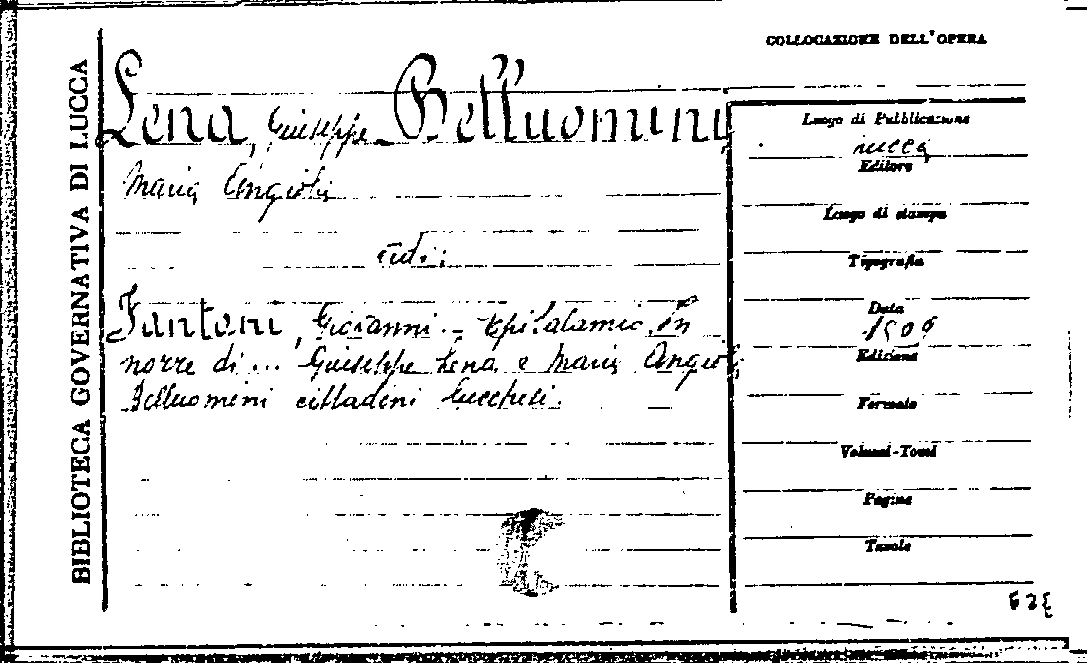 COLLOCAZIONE DELL'OPERA
BIBLIOTECA GOVERNATIVA DI LUCCA
Lena, Giuseppe - Belluomini,
Maria Angiola
vedi:
Fantoni, Giovanni - Epitalamio in
nozze di... Giuseppe Lena e Maria Angiola
Belluomini cittadini lucchesi.
Luogo di Pubblicazione
Lucca
Editore
Luogo di stampa
Tipografia
Data
Edizione
Formato
Volumi-Tomi
Pagine
Tavole